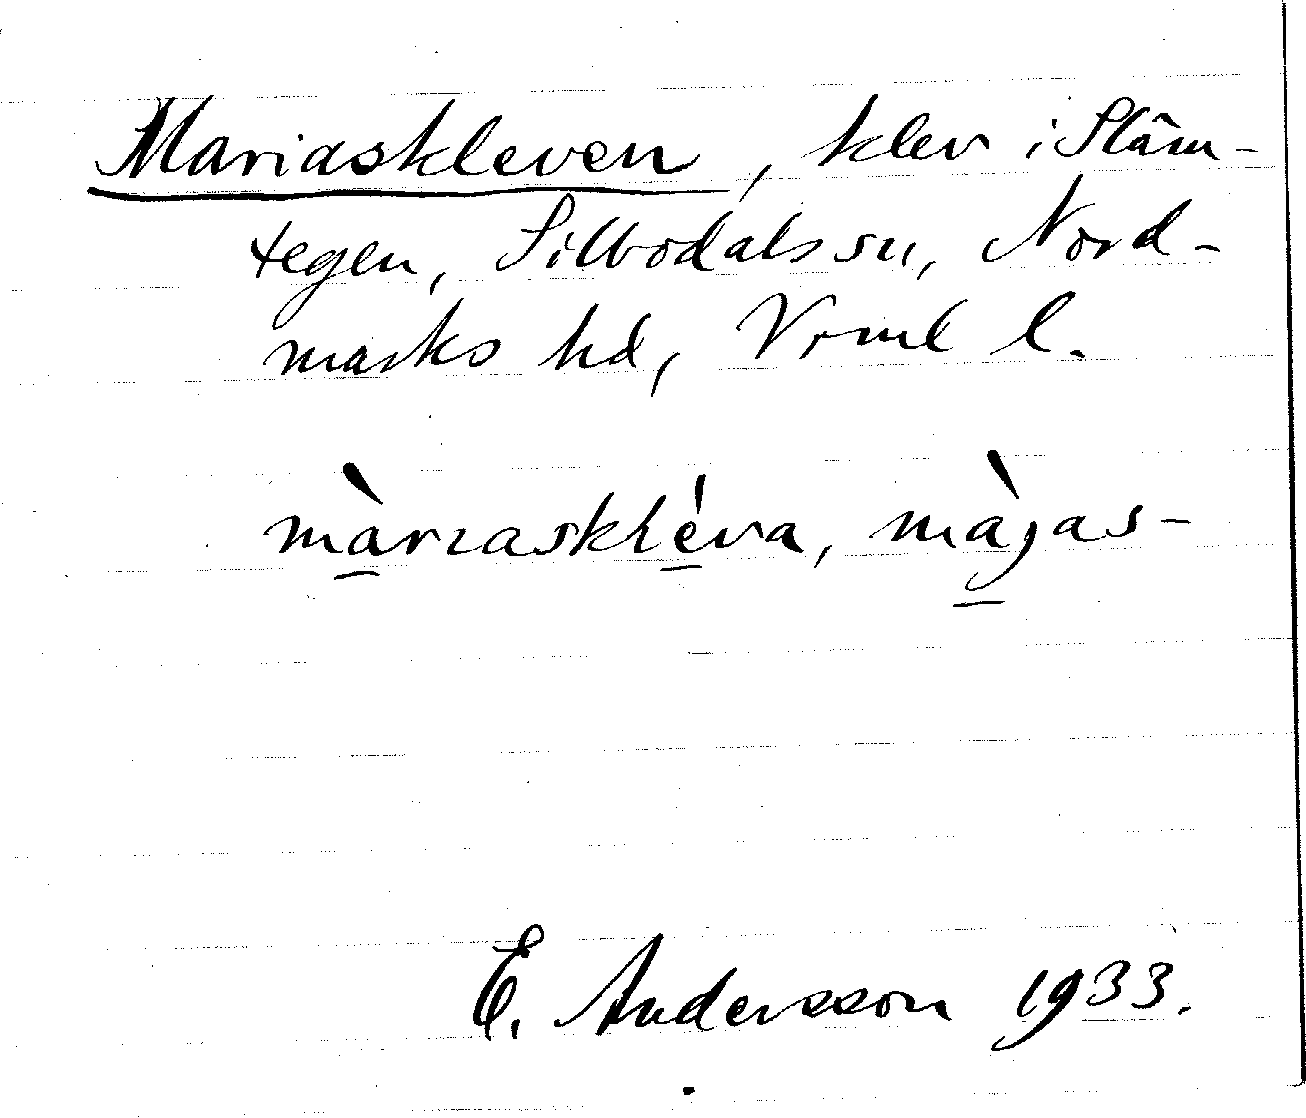 Mariaskleven, klev i Släm-
tegen, Silbodals sn, Nord-
marks hd, Vrml l.
màrıaskléva, màjas-
E. Andersson 1933.